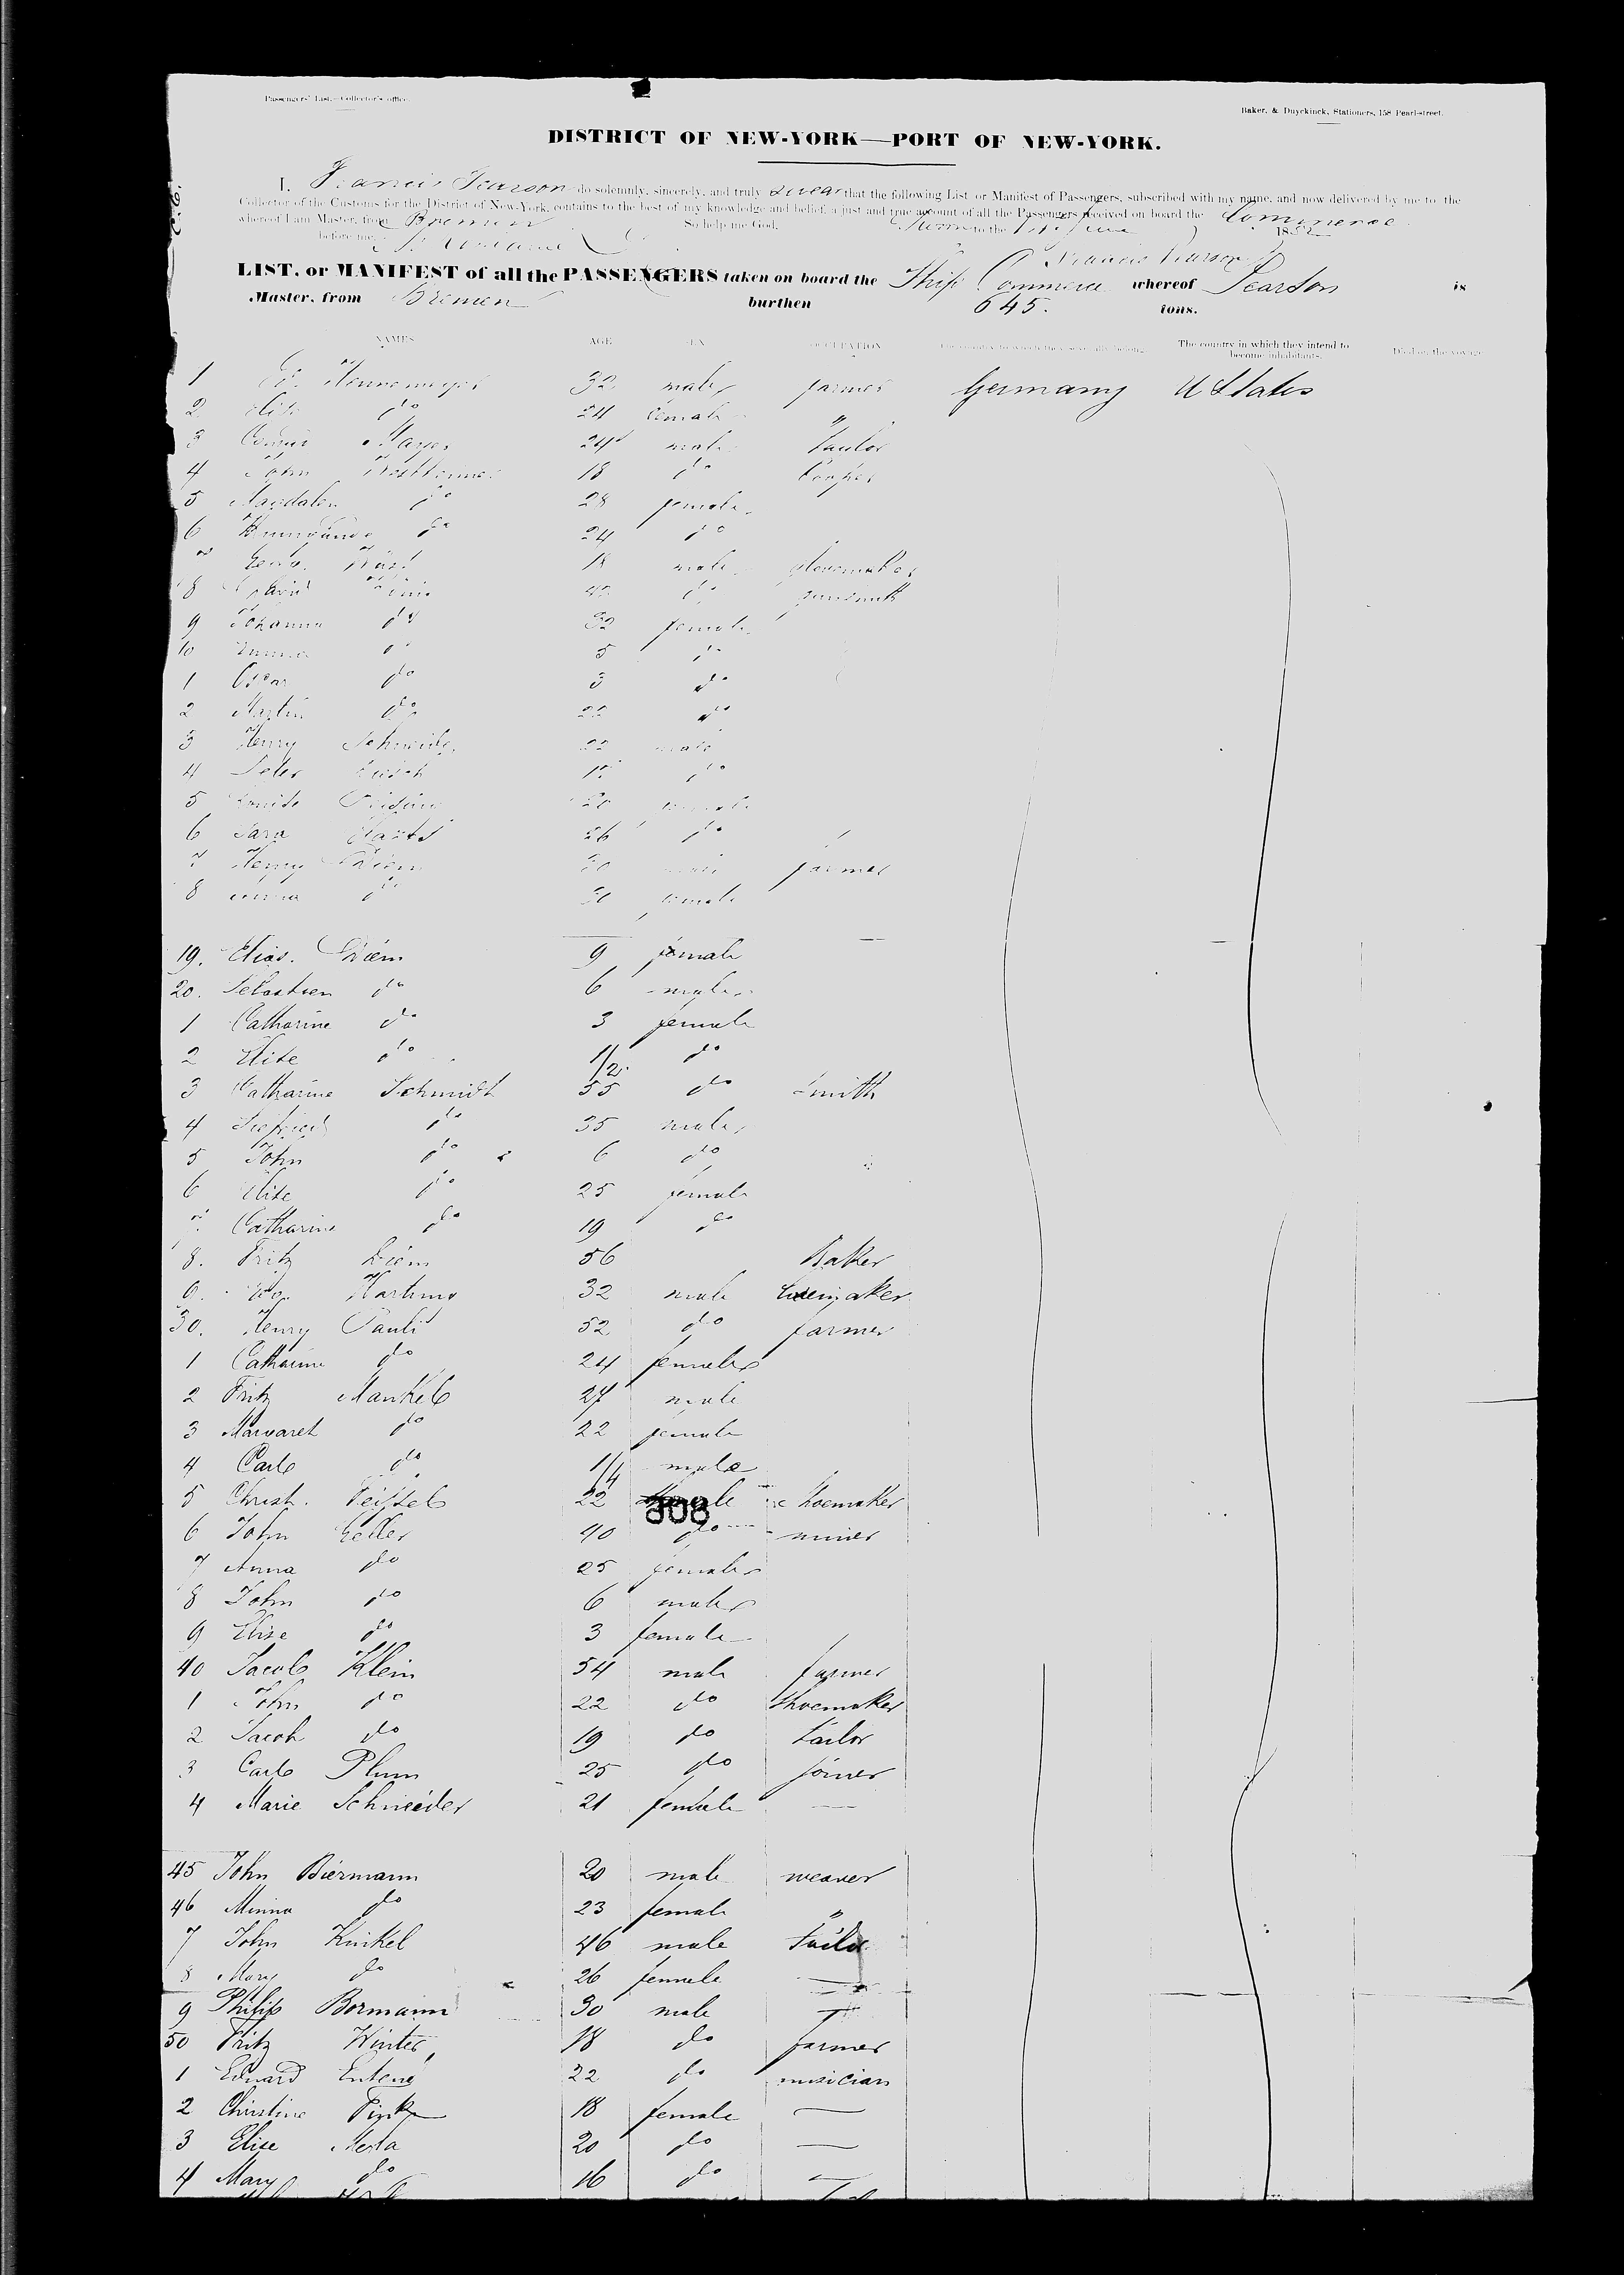 Passengers' List.—Collector's office.
Baker, & Duyckinck, Stationers, 158 Pearl-street.
DISTRICT OF NEW-YORK—PORT OF NEW-YORK.
I, Francis Pearson do solemnly, sincerely, and truly swear that the following List or Manifest of Passengers, subscribed with my name, and now delivered by me to the
Collector of the Customs for the District of New-York, contains to the best of my knowledge and belief, a just and true account of all the Passengers received on board the Commerce
whereof I am Master, from Bremen So help me God.
Sworn to the June 1852
before me,
Francis Pearson
LIST, or MANIFEST of all the PASSENGERS taken on board the Ship Commerce whereof Pearson is
Master, from Bremen burthen 645. tons.
NAMES AGE SEX OCCUPATION The country to which they severally belong The country in which they intend to become inhabitants. Died on the voyage
1 32 male farmer Germany U States
2 do 24 female "
3 Mayer 24 male Tailor
4 John 18 do Cooper
5 Magdalen do 28 female
6 do 24 do
7 18 male glovemaker
8 do gunsmith
9 Johanna do 32 female
10 do 5 do
1 Oscar do 3 do
2 Martin do 22 do
3 Henry Schneider 22 male
4 Peter do
5 Louise 20 female
6 26 do
7 Henry Diem 30 farmer
8 Anna do 30 female
19. Elias. Diem 9 female
20. Sebastien do 6 male
1 Catharine do 3 female
2 Elise do 1/2 do
3 Catharine Schmidt 55 do Smith
4 Siefried do 35 male
5 John do 6 do
6 Elise do 25 female
7. Catharine do 19 do
8. Fritz Diem 56 Baker
9. Hartung 32 male
30. Henry Pauli 52 do farmer
1 Catharine do 24 female
2 Fritz Mankel 27 male
3 Margaret do 22 female
4 Carl do 1/4 male
5 Christ. 22 male Shoemaker
308
6 John Geller 40 do miner
7 Anna do 25 female
8 John do 6 male
9 Elise do 3 female
40 Jacob Klein 54 male farmer
1 John do 22 do Shoemaker
2 Jacob do 19 do tailor
3 Carl Plum 25 do joiner
4 Marie Schneider 21 female —
45 John Biermann 20 male weaver
46 Minna do 23 female "
7 John Kinkel 46 male tailor
8 Mary do 26 female —
9 Philip Bormann 30 male
50 Fritz Winter 18 do farmer
1 Eduard 22 do musician
2 Christine Fink 18 female —
3 Elise Merla 20 do —
4 Mary do 16 do —